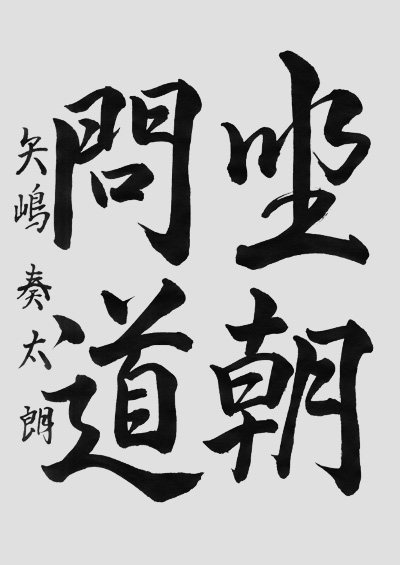 坐朝
問道
矢嶋奏太朗